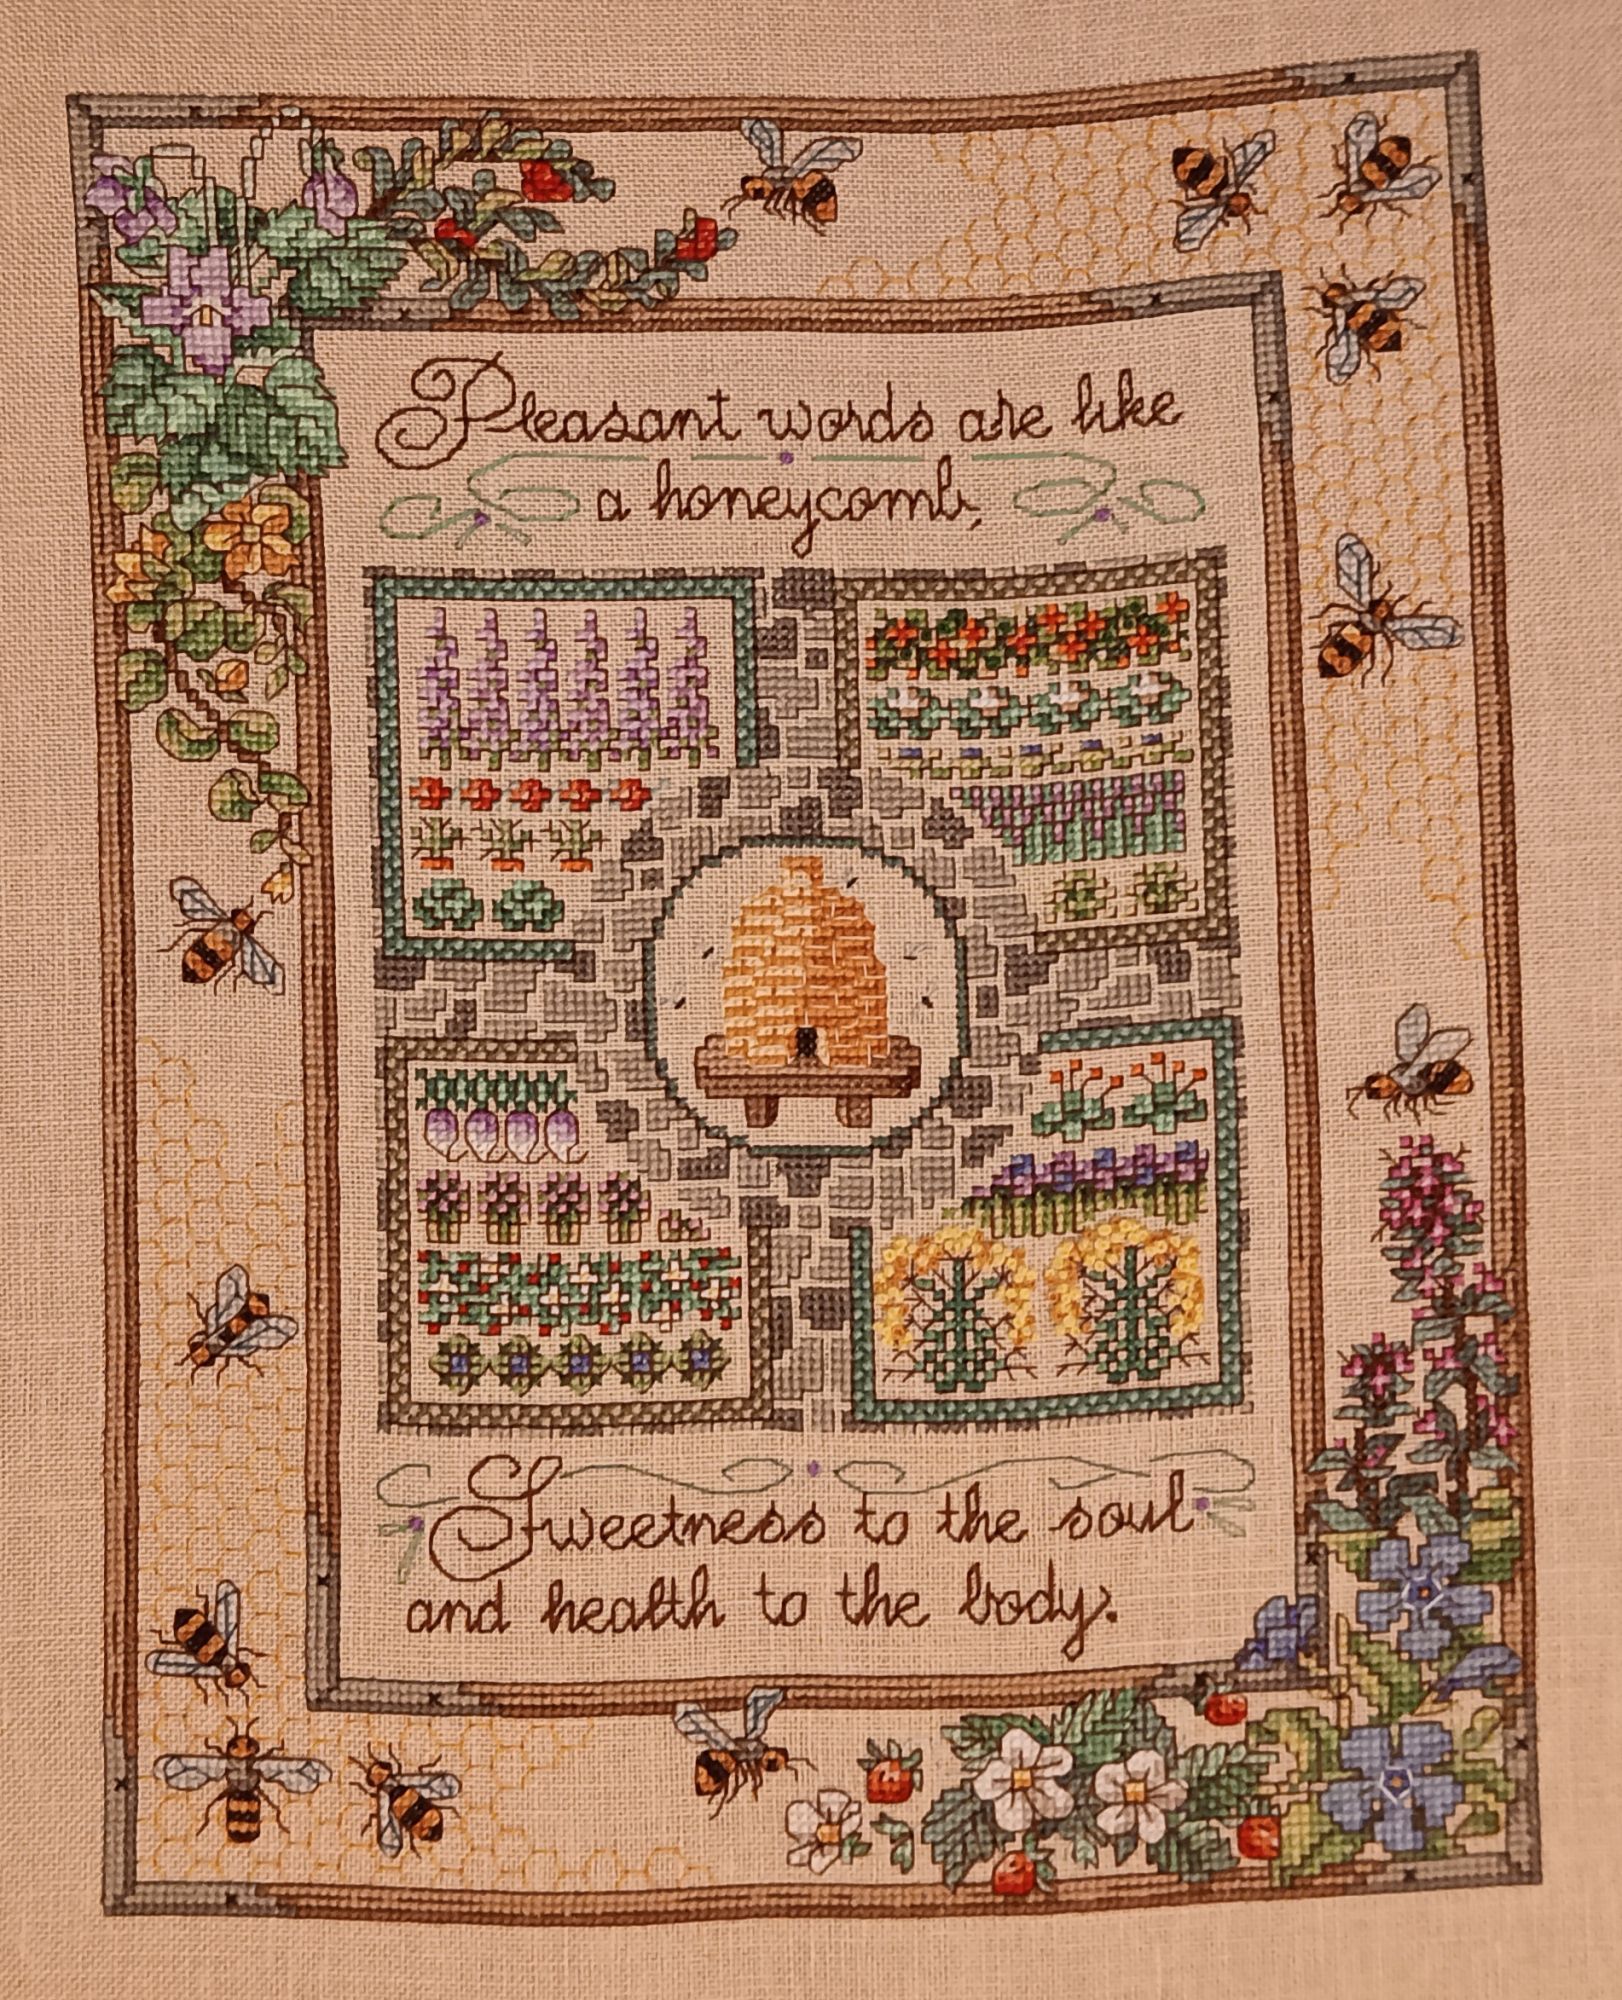 Pleasant words are like
a honeycomb,
Sweetness to the soul
and health to the body.